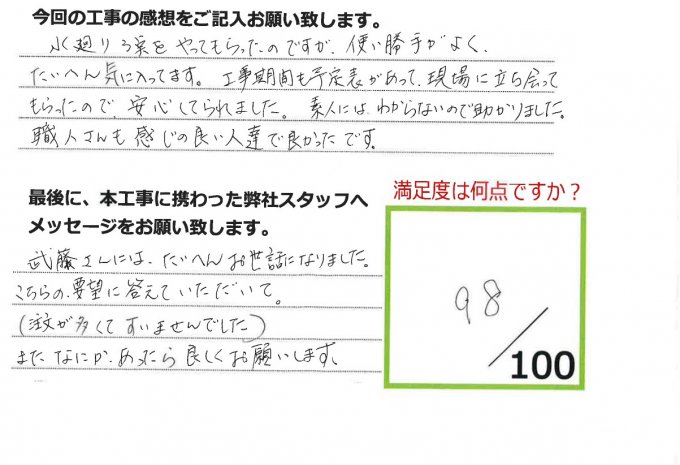 今回の工事の感想をご記入お願い致します。
水廻り3点をやってもらったのですが、使い勝手がよく、
たいへん気に入ってます。工事期間も予定表があって、現場に立ち会って
もらったので、安心してられました。素人には、わからないので助かりました。
職人さんも感じの良い人達で良かったです。
最後に、本工事に携わった弊社スタッフへ
メッセージをお願い致します。
武藤さんには、たいへんお世話になりました。
こちらの、要望に答えていただいて。
(注文が多くてすいませんでした)
またなにか、あったら良しくお願いします。
満足度は何点ですか？
98
100